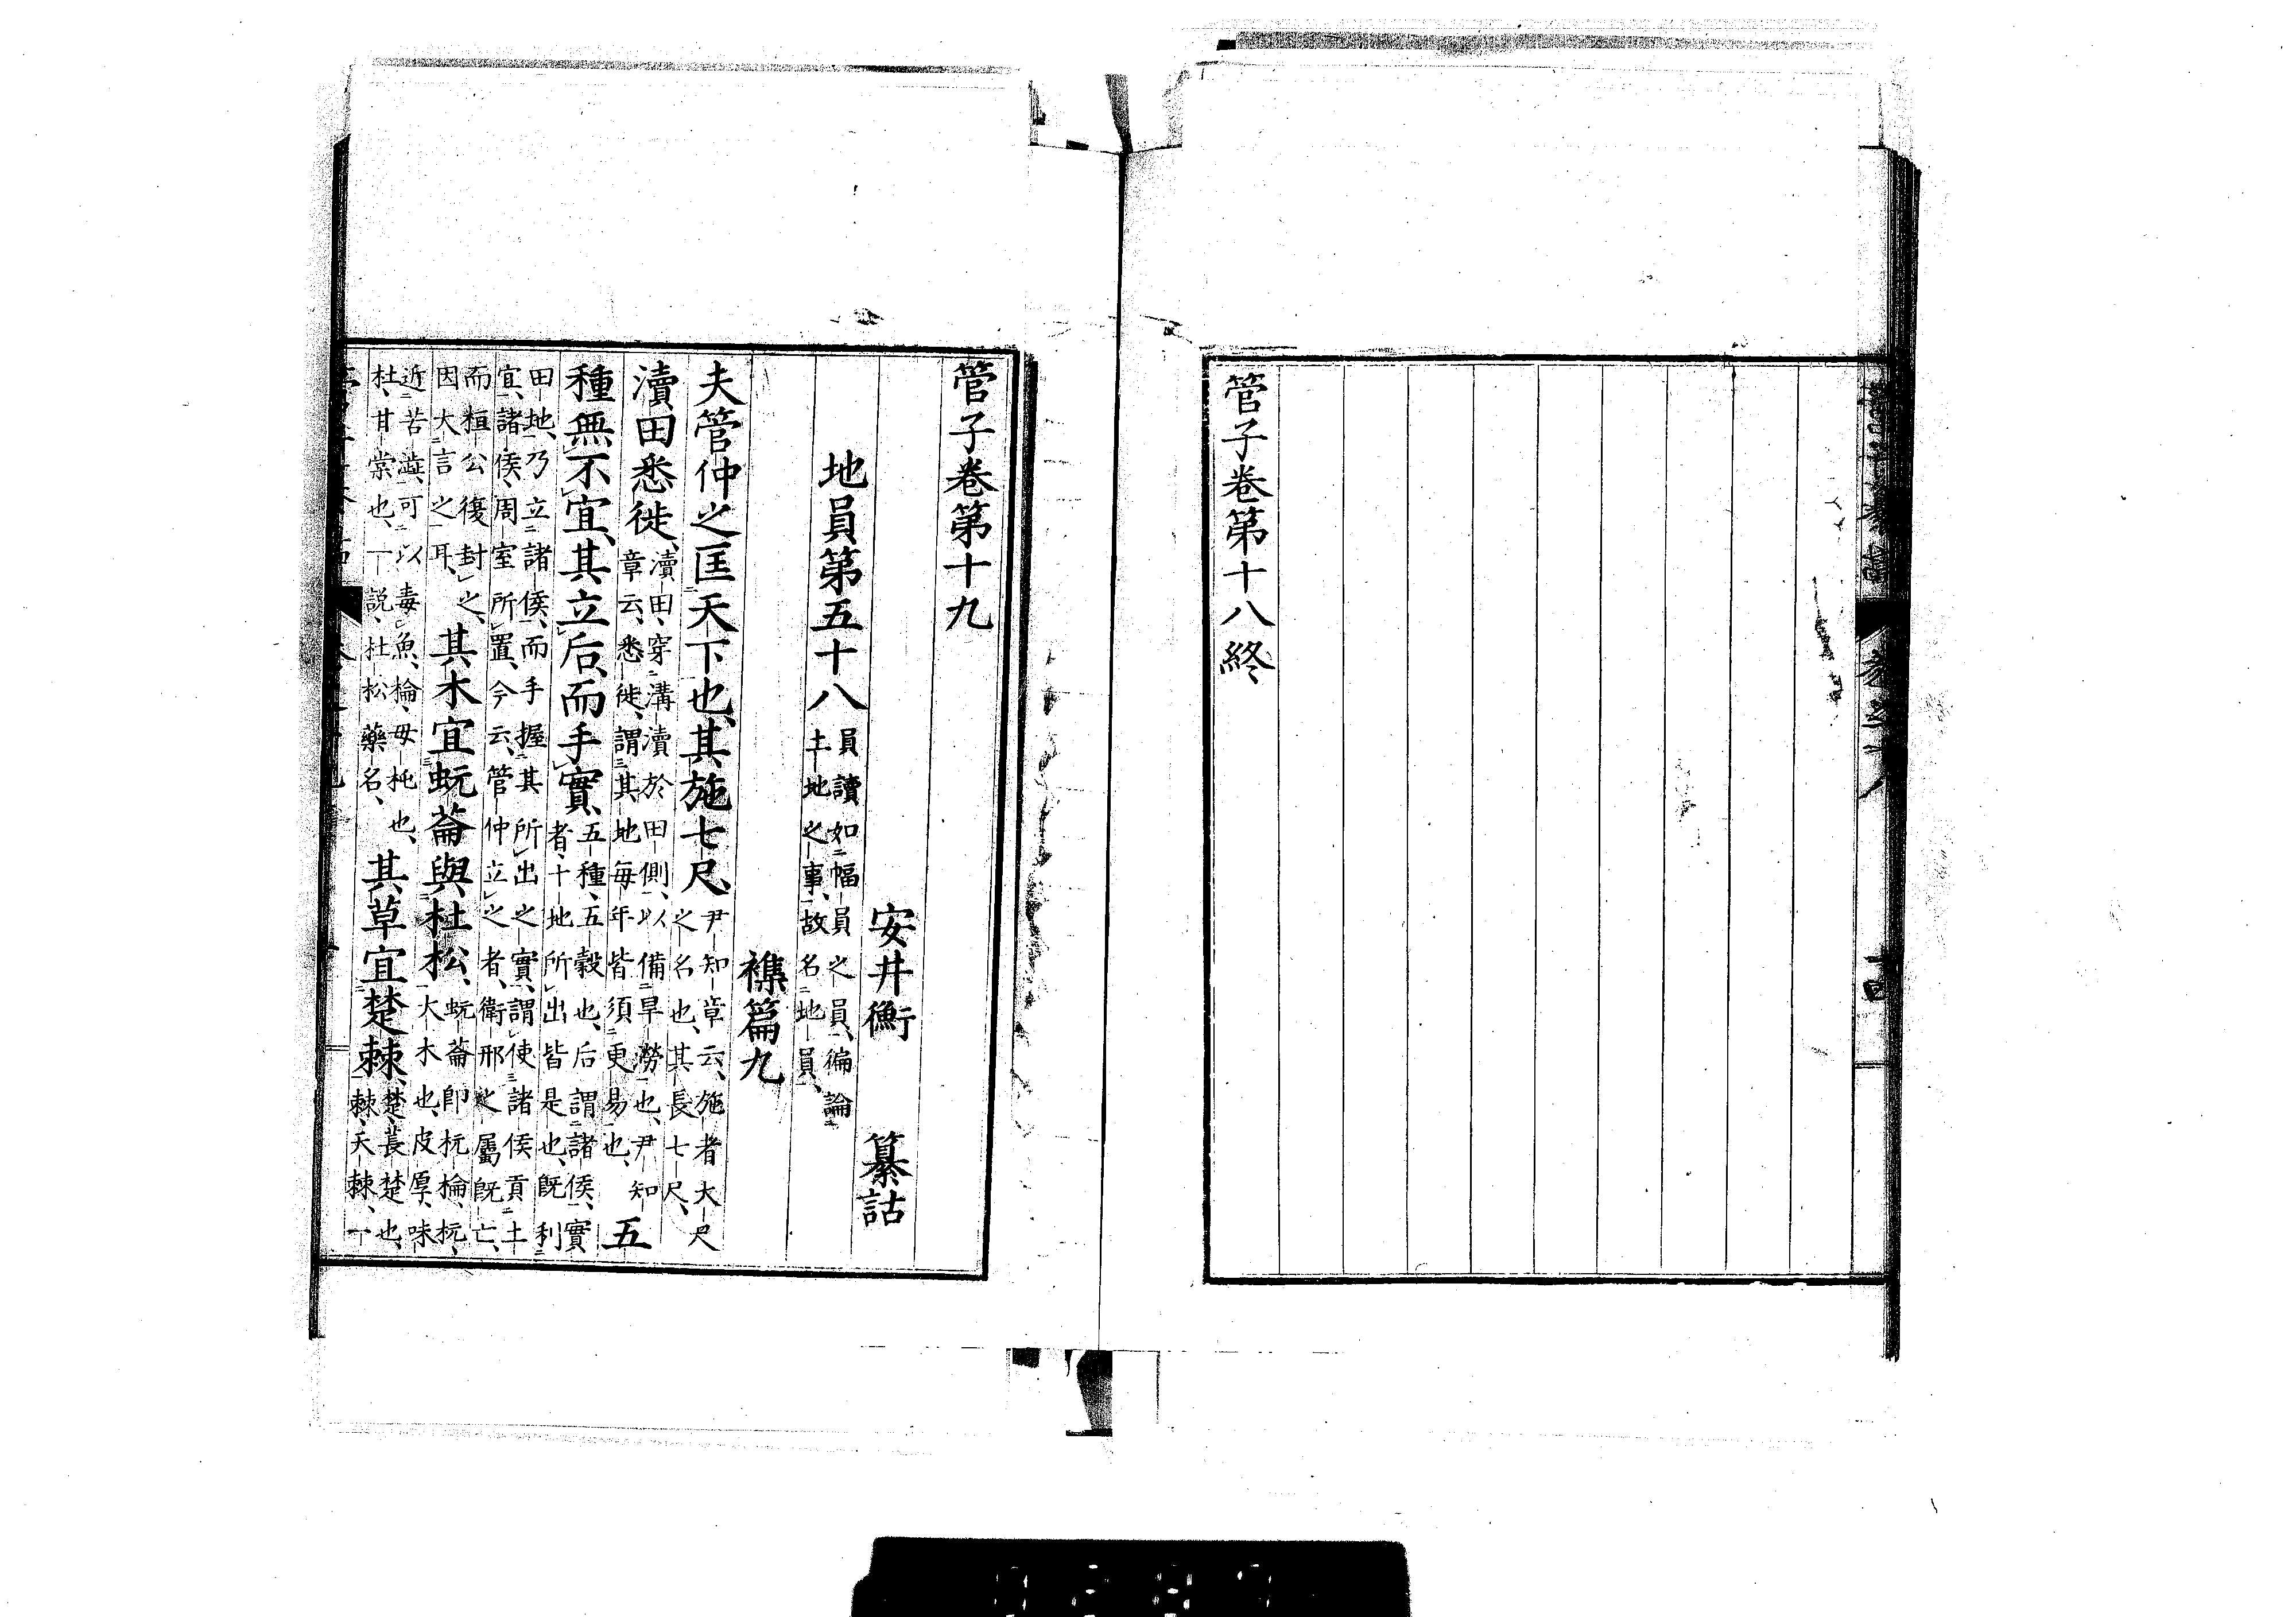 管子卷第十八終
管子卷第十九
安井衡 纂詁
地員第五十八 員讀如幅員之員、徧論
土地之事、故名地員、
襍篇九
夫管仲之匡天下也、其施七尺、尹知章云、施者大尺
之名也、其長七尺、
瀆田悉徙、瀆田、穿溝瀆於田側、以備旱澇也、尹知
章云、悉徙、謂其地每年皆須更易也、五
種無不宜、其立后而手實、五種、五穀也、后謂諸侯、實
者、十地所出皆是也、既利
田地、乃立諸侯、而手握其所出之實、謂使諸侯貢土
宜、諸侯、周室所置、今云、管仲立之者、衛邢之屬既亡、
而桓公復封之、
因大言之耳、其木宜蚖菕與杜松、蚖菕卽杬棆、杬、
大木也、皮厚、味
近苦澁、可以毒魚、棆、毋杶也、
杜、甘棠也、一說、杜松藥名、其草宜楚棘、楚、萇楚也、
棘、天棘、一